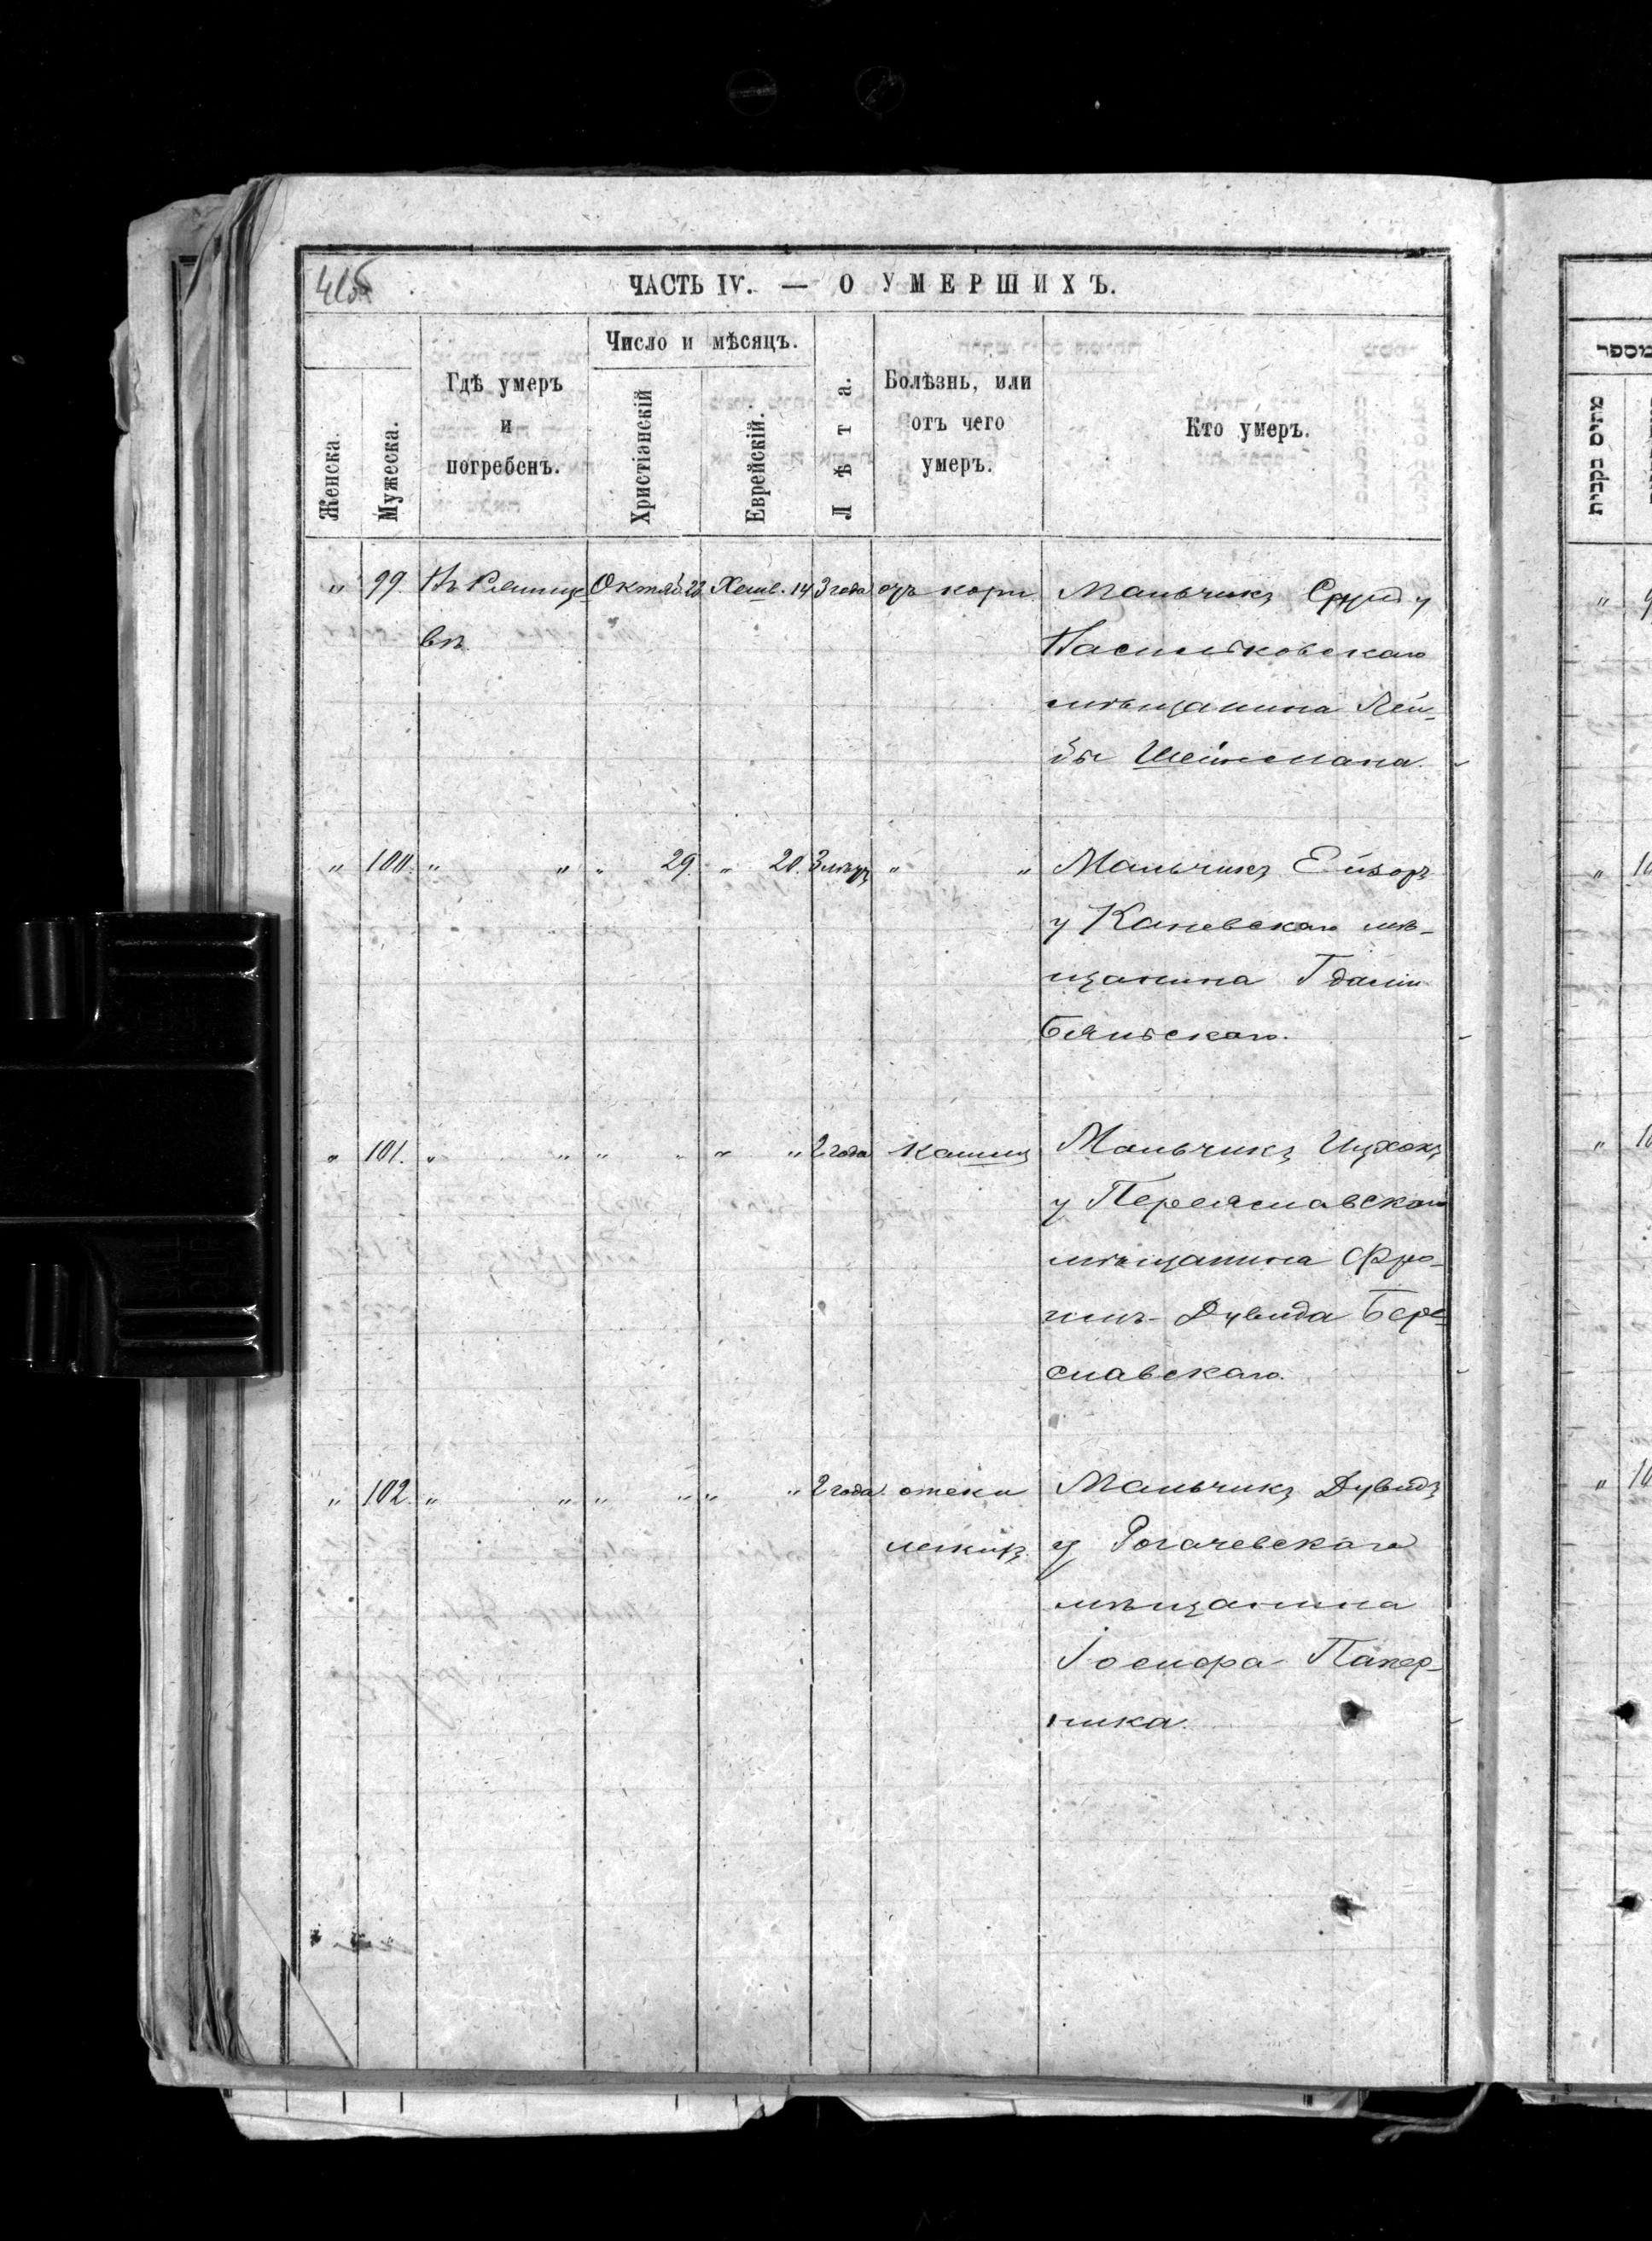 ЧАСТЬ IV. — О УМЕРШИХЪ.
Женска.
Мужеска.
Гдѣ умеръ
и
погребенъ.
Число и мѣсяцъ.
Христіанскій
Еврейскій.
Лѣта.
Болѣзнь, или
отъ чего
умеръ.
Кто умеръ.
מספר
" 99. Октяб. 23. Хешв. 14 3 года отъ кори Мальчикъ Сруль у
вѣ. Васильковскаго
мѣщанина Лей-
бы Шейнмана.
" 100. " " " 29. " 20. " " Мальчикъ Ейзоръ
у Каневскаго мѣ-
щанина Гдаліи
Бялыскаго.
" 101. " " " " " " 2 года кашиц Мальчикъ Ицхокъ
у Переяславскаго
мѣщанина Фро-
имъ-Дувида Бере-
славскаго.
" 102. " " " " " " 2 года отеки Мальчикъ Дувидъ
легкихъ. у Рогачевскаго
мѣщанина
Іосифа Папер-
ника.